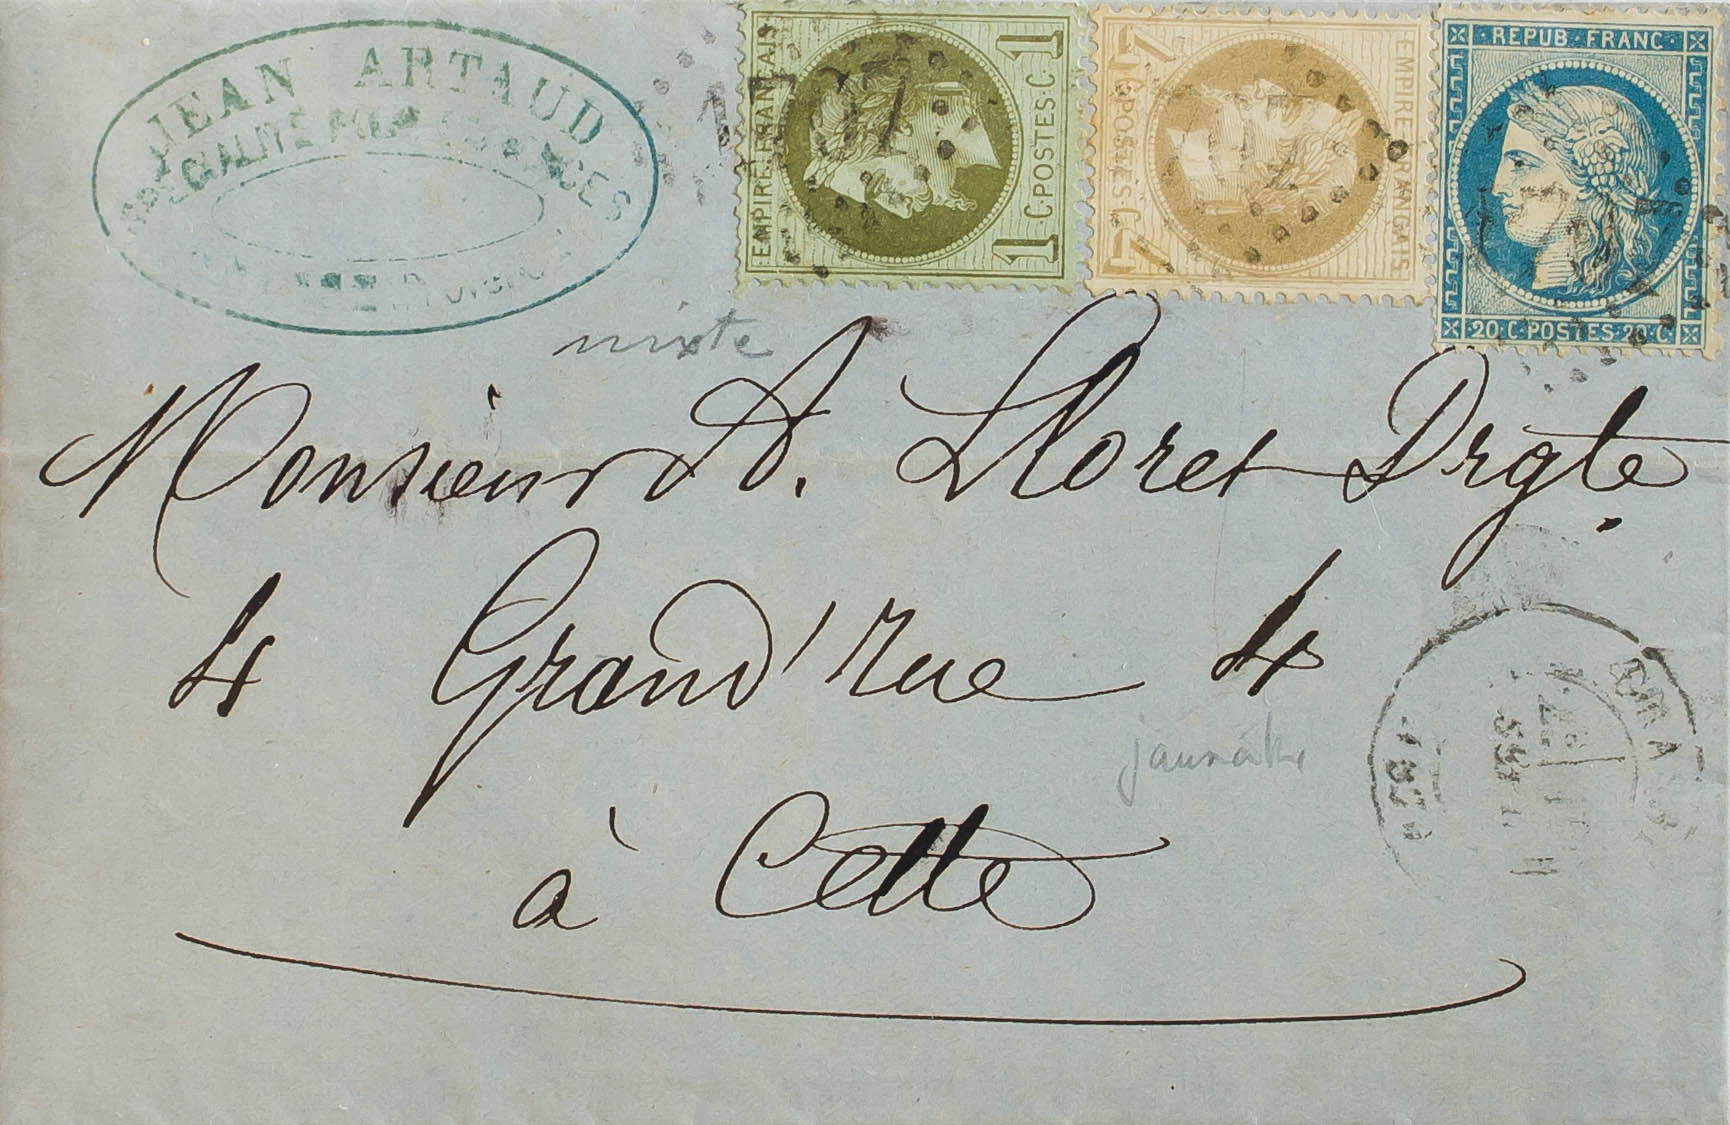 JEAN ARTAUD
SPECIALITÉ POUR
EMPIRE FRANÇAIS
1 C. POSTES C. 1
EMPIRE FRANÇAIS
4 C. POSTES C. 4
REPUB. FRANC.
20 C. POSTES 20 C.
mixte
Monsieur A. Lloret Drgte
4 Grand'rue 4
jaunâtre
à Cette